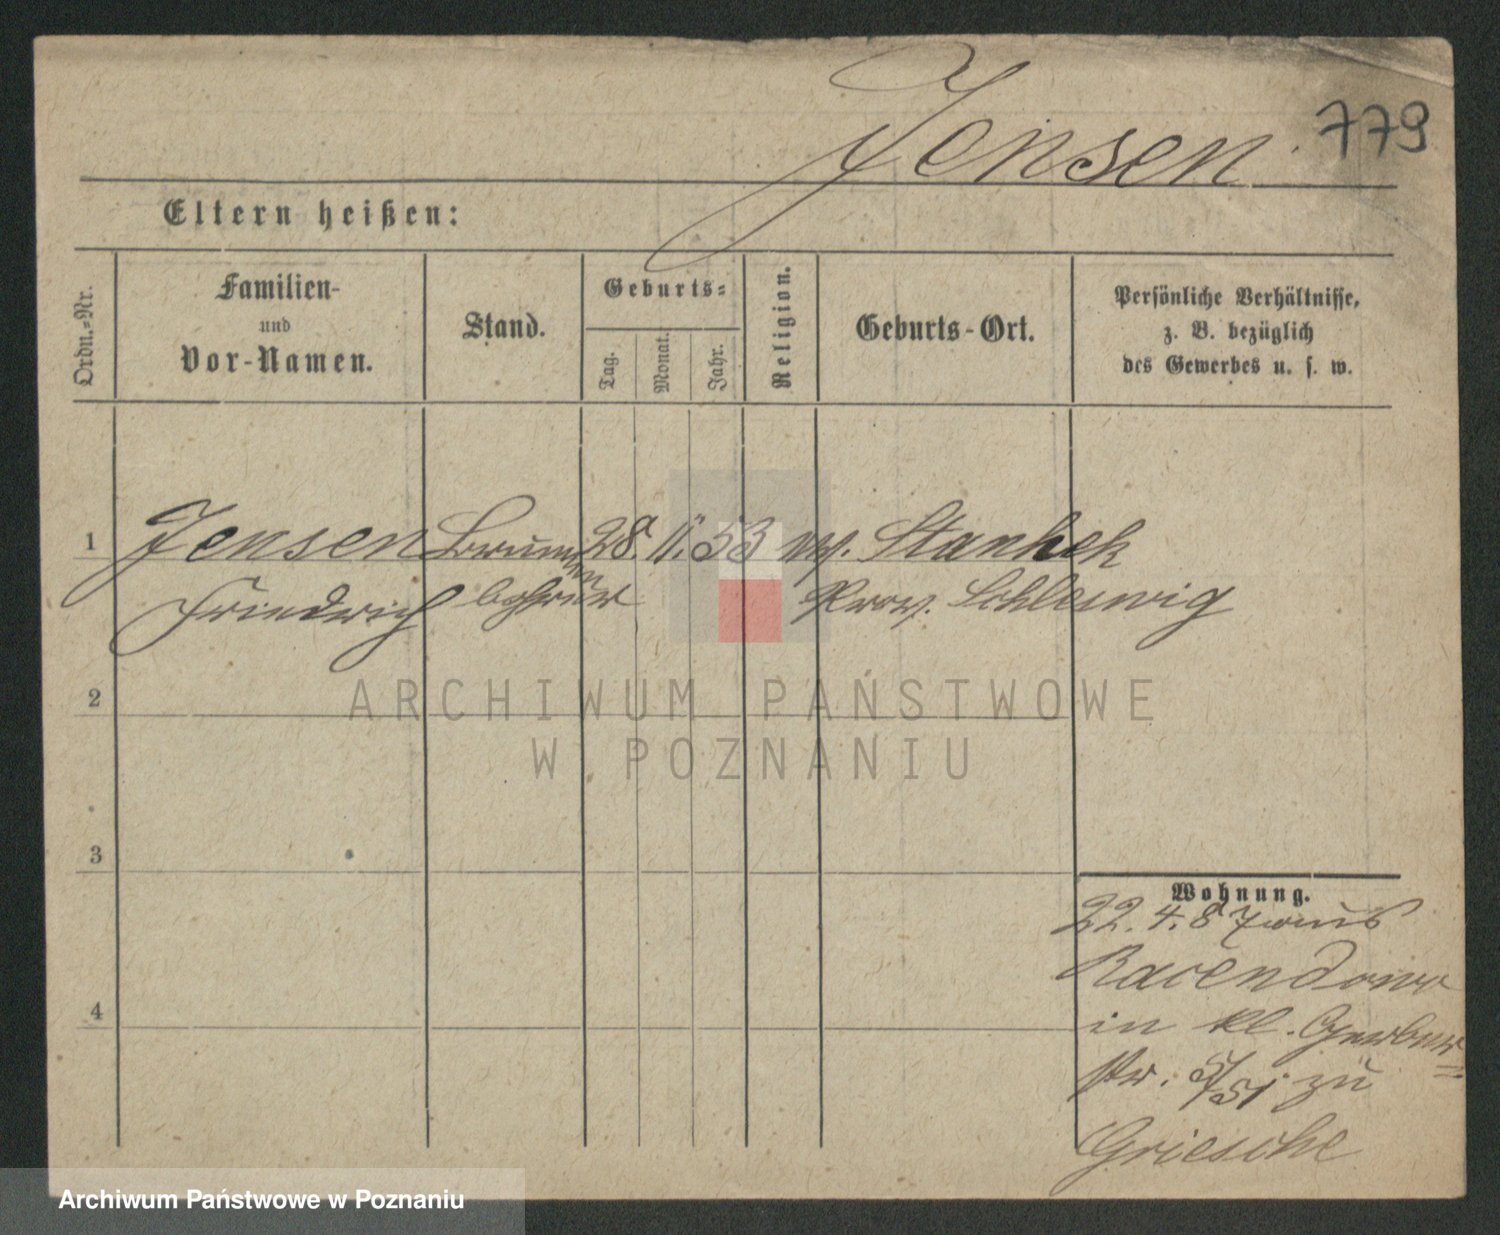 Jensen 779
Eltern heißen:
Ordn.-Nr.
Familien-
und
Vor-Namen.
Stand.
Geburts-
Tag.
Monat.
Jahr.
Religion.
Geburts-Ort.
Persönliche Verhältnisse,
z. B. bezüglich
des Gewerbes u. s. w.
1 Jensen Brunnen 28. 11. 53 ev. Stanhek
Friedrich bohrer Prov. Schleswig
2
3
4
Wohnung.
22. 4. 87 aus
in kl. Gerber=
str. 5/51 zu
Griesche
ARCHIWUM PAŃSTWOWE
W POZNANIU
Archiwum Państwowe w Poznaniu